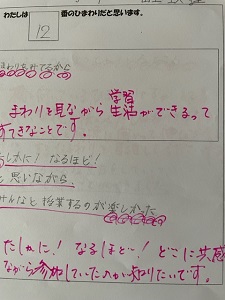 わたしは 12 番のひまわりだと思います。
まわりを見てるから
学習
まわりを見ながら生活ができるって
すてきなことです。
たしかに！なるほど！
と思いながら
みんなと授業するのが楽しかった
たしかに！なるほど！どこに共感
ながら参加していたのか知りたいです。